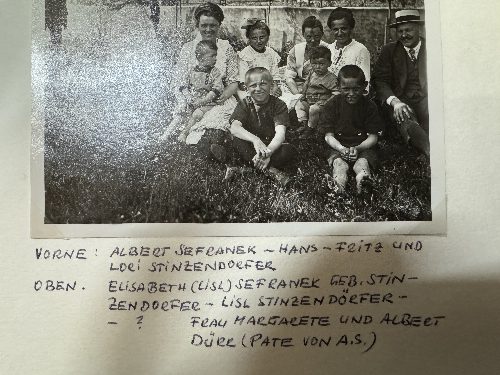 VORNE: ALBERT SEFRANEK – HANS – FRITZ UND
LORI STINZENDÖRFER
OBEN. ELISABETH (LISL) SEFRANEK GEB. STIN-
ZENDORFER – LISL STINZENDÖRFER –
– ? FRAU MARGARETE UND ALBERT
DÜRR (PATE VON A.S.)